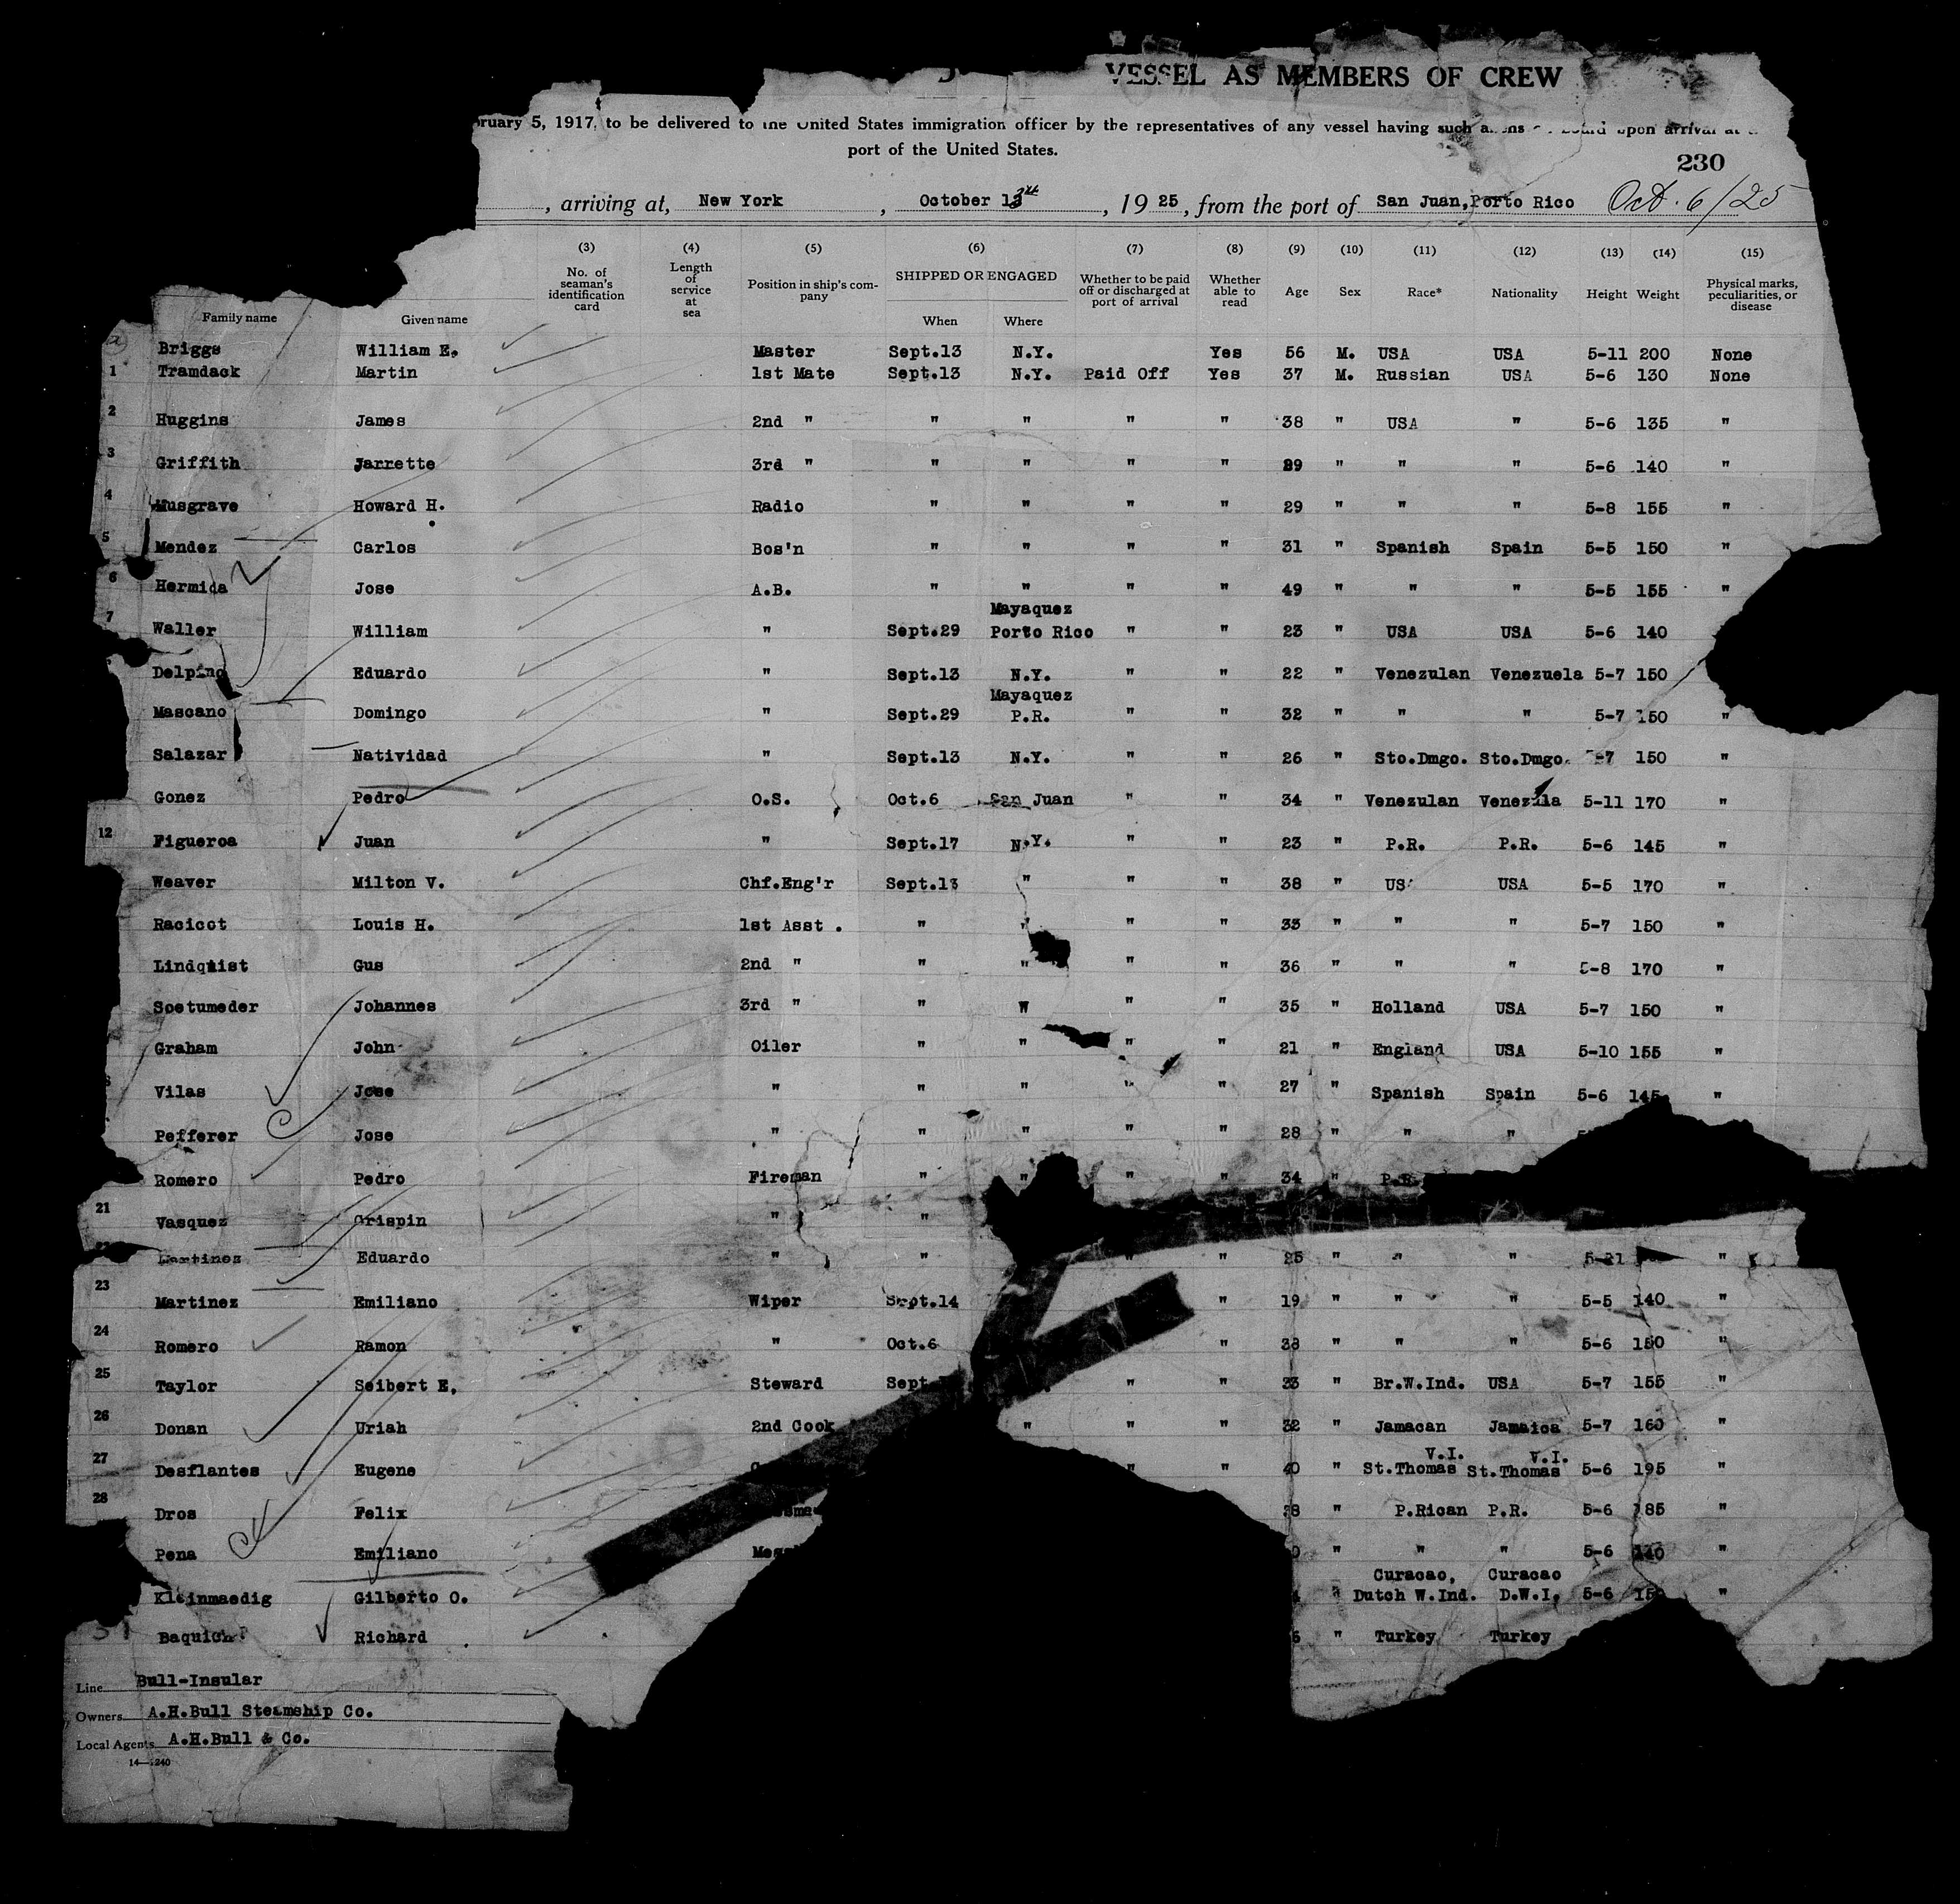 VESSEL AS MEMBERS OF CREW
ruary 5, 1917, to be delivered to the United States immigration officer by the representatives of any vessel having such aliens on board upon arrival at
port of the United States.
230
, arriving at, New York , October 13th , 1925, from the port of San Juan, Porto Rico Oct. 6/25
(3) (4) (5) (6) (7) (8) (9) (10) (11) (12) (13) (14) (15)
Family name Given name No. of seaman's identification card Length of service at sea Position in ship's company SHIPPED OR ENGAGED When Where Whether to be paid off or discharged at port of arrival Whether able to read Age Sex Race* Nationality Height Weight Physical marks, peculiarities, or disease
Briggs William E. Master Sept.13 N.Y. Yes 56 M. USA USA 5-11 200 None
1 Tramdack Martin 1st Mate Sept.13 N.Y. Paid Off Yes 37 M. Russian USA 5-6 130 None
2 Huggins James 2nd " " " " " 38 " USA " 5-6 135 "
3 Griffith Jarrette 3rd " " " " " 29 " " " 5-6 140 "
4 Musgrave Howard H. Radio " " " " 29 " " " 5-8 155 "
5 Mendez Carlos Bos'n " " " " 31 " Spanish Spain 5-5 150 "
6 Hermida Jose A.B. " " " " 49 " " " 5-5 155 "
7 Waller William " Sept.29 Mayaquez Porto Rico " " 23 " USA USA 5-6 140
Delpino Eduardo " Sept.13 N.Y. " " 22 " Venezulan Venezuela 5-7 150
Mascano Domingo " Sept.29 Mayaquez P.R. " " 32 " " " 5-7 150 "
Salazar Natividad " Sept.13 N.Y. " " 26 " Sto.Dmgo. Sto.Dmgo. -7 150 "
Gonez Pedro O.S. Oct.6 San Juan " " 34 " Venezulan 5-11 170 "
12 Figueroa Juan " Sept.17 N.Y. " " 23 " P.R. P.R. 5-6 145 "
Weaver Milton V. Chf.Eng'r Sept.13 " " " 38 " US USA 5-5 170 "
Racicot Louis H. 1st Asst. " " " " 33 " " " 5-7 150 "
Lindquist Gus 2nd " " " " " 36 " " " 5-8 170 "
Soetumeder Johannes 3rd " " W " " 35 " Holland USA 5-7 150 "
Graham John Oiler " " " " 21 " England USA 5-10 155 "
Vilas Jose " " " " " 27 " Spanish Spain 5-6 145 "
Pefferer Jose " " " " " 28 " " "
Romero Pedro Fireman " " " " 34 " P.R.
21 Vasquez Crispin " "
Martinez Eduardo " " " " 25 " " " "
23 Martinez Emiliano Wiper Sept.14 " 19 " " " 5-5 140 "
24 Romero Ramon " Oct.6 " 38 " " " 5-6 150 "
25 Taylor Seibert E. Steward Sept " " 33 " Br.W.Ind. USA 5-7 155 "
26 Donan Uriah 2nd Cook " " " 32 " Jamacan Jamaica 5-7 160 "
27 Desflantes Eugene " " 40 " V.I. St.Thomas V.I. St.Thomas 5-6 195 "
28 Dros Felix 8 " P.Rican P.R. 5-6 185 "
Pena Emiliano " " " 5-6 140 "
Kleinmaedig Gilberto O. " Curacao, Dutch W.Ind. Curacao D.W.I. 5-6 "
Baquich Richard " Turkey Turkey
Line Bull-Insular
Owners A.H.Bull Steamship Co.
Local Agents A.H.Bull & Co.
14—1240